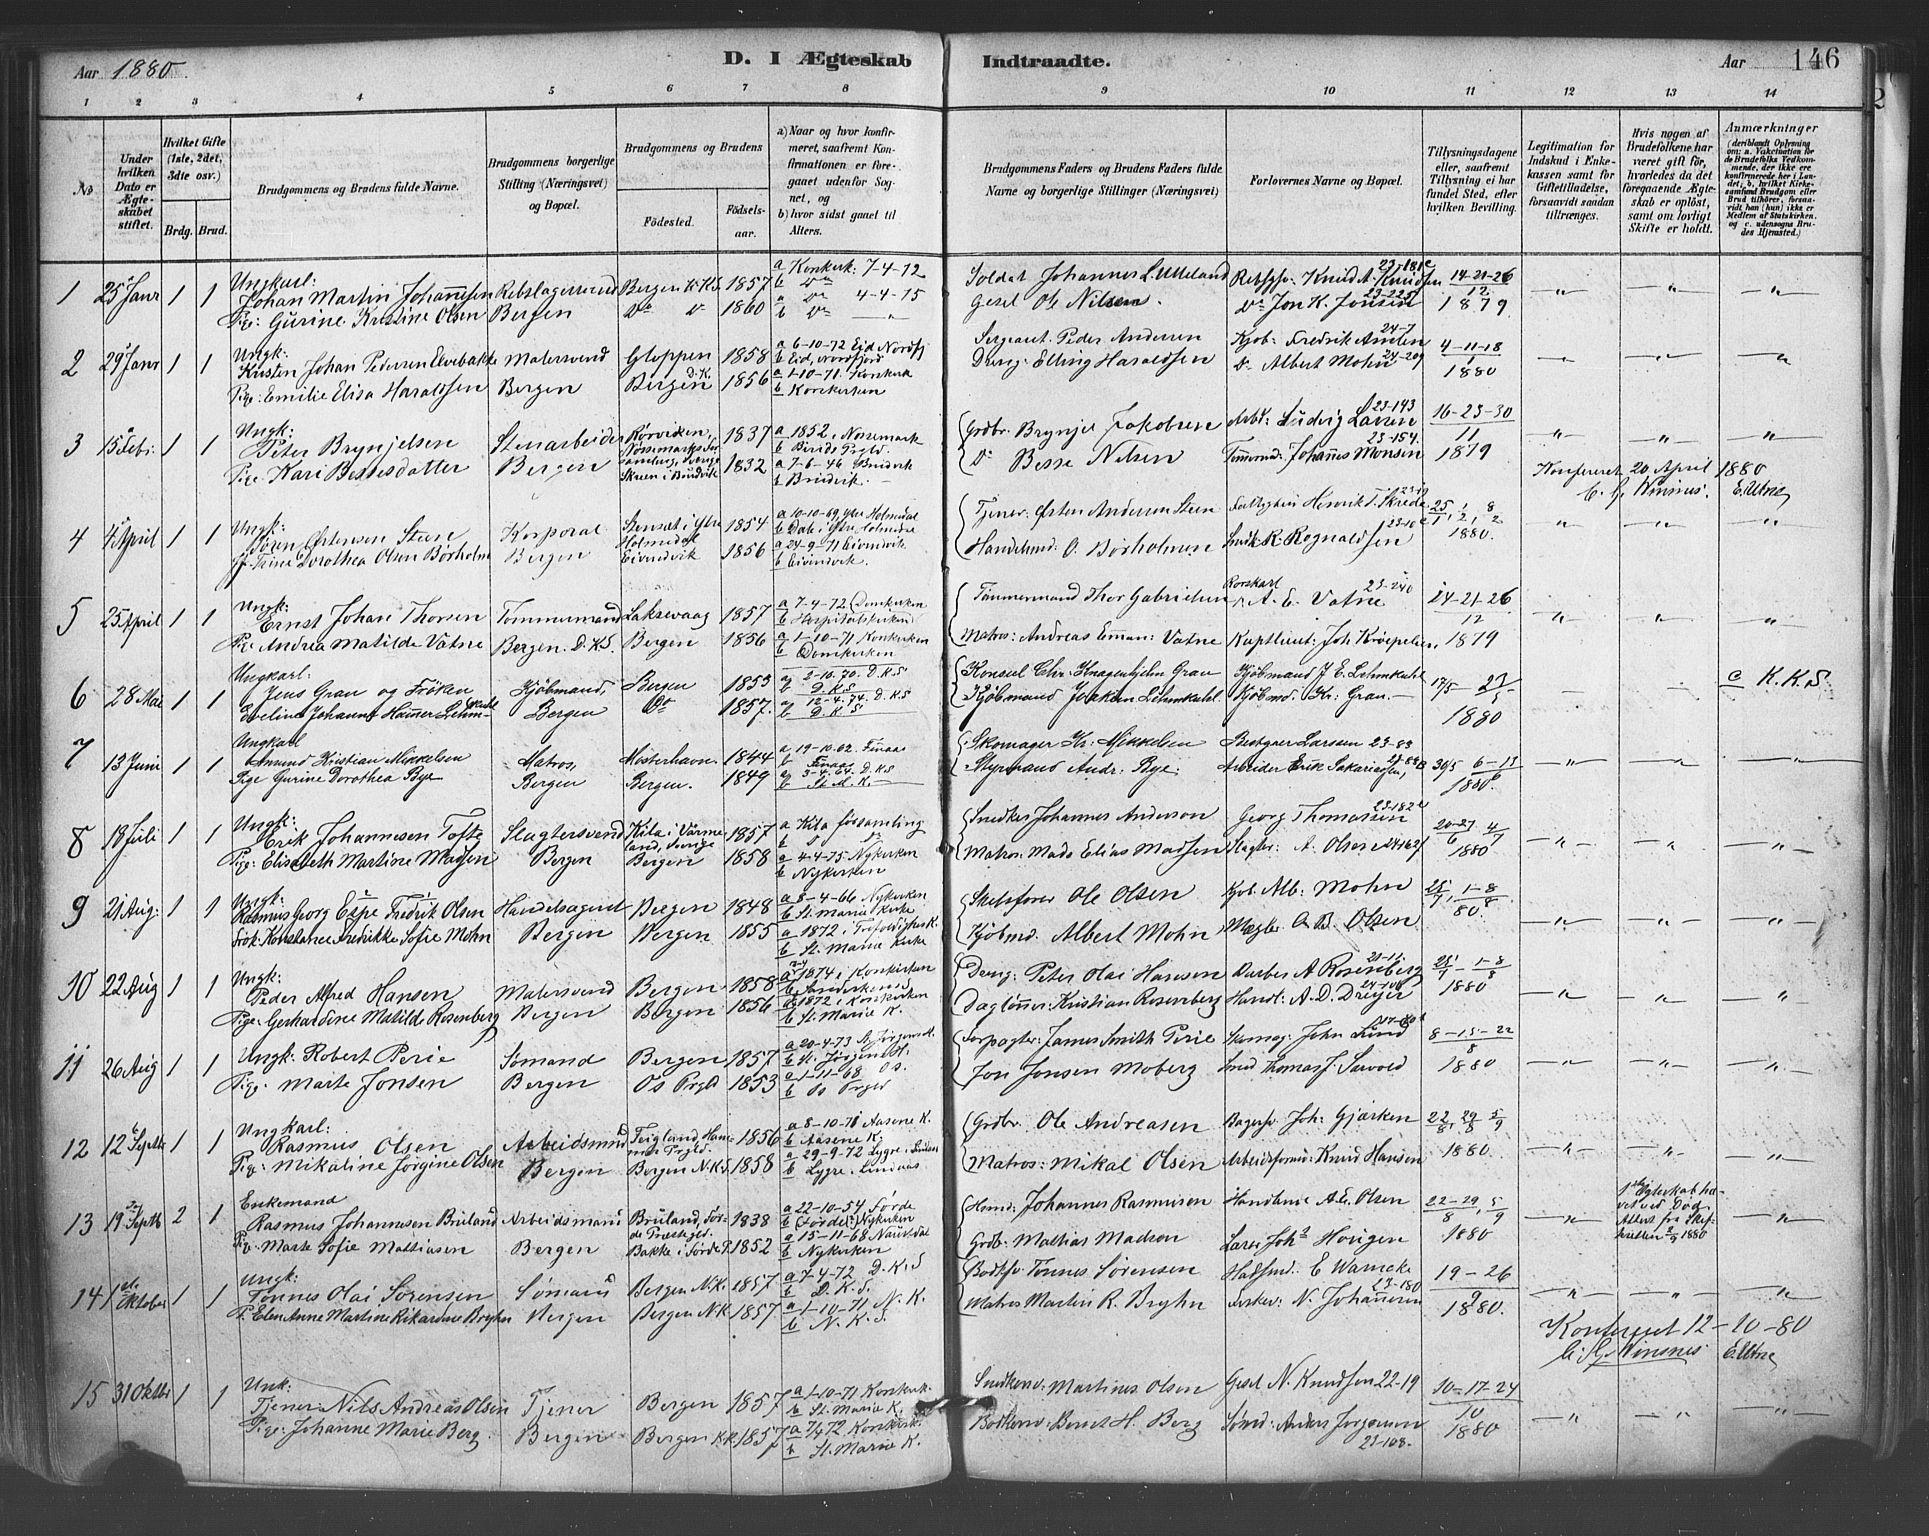 Aar 1880.
D. I Ægteskab Indtraadte.
Aar 146
1 2 3 4 5 6 7 8 9 10 11 12 13 14
No
Under hvilken Dato er Ægteskabet stiftet.
Hvilket Gifte (1ste, 2det, 3die osv.)
Brdg. Brud.
Brudgommens og Brudens fulde Navne.
Brudgommens borgerlige Stilling (Næringsvei) og Bopæl.
Brudgommens og Brudens
Fødested.
Fødselsaar.
a) Naar og hvor konfirmeret, saafremt Konfirmationen er foregaaet udenfor Sognet, og
b) hvor sidst gaaet til Alters.
Brudgommens Faders og Brudens Faders fulde Navne og borgerlige Stillinger (Næringsvei)
Forlovernes Navne og Bopæl.
Tillysningsdagene eller, saafremt Tillysning ei har fundet Sted, efter hvilken Bevilling.
Legitimation for Indskud i Enkekassen samt for Giftetilladelse, forsaavidt saadan tiltrænges.
Hvis nogen af Brudefolkene har været gift før, hvorledes da det foregaaende Ægteskab er opløst, samt om lovligt Skifte er holdt.
Anmærkninger (deriblandt Oplysning om: a. Vakcination for de Brudefolks Vedkommende, der ikke ere konfirmerede her i Landet, b. hvilket Kirkesamfund Brudgom eller Brud tilhører, forsaavidt han (hun) ikke er Medlem af Statskirken, og c. udensogns Brudes Hjemsted.)
1 25 Janr 1 1 Ungkarl: Johan Martin Johannesen Rebslagersvend Bergen K.K. 1857 a Korskirk: 7-4-12 Soldat Johannes L. Utteland Knud A. Knudsen 14-21-26
Pig: Gurine Kristine Olsen Bergen Do Do 1860 Do 4-4-15 Gesel Ole Nilsen Do Jon K. Jonsen 12 1879
2 29 Janr 1 1 Ungk: Kristen Johan Pedersen Elvebakke Malersvend Gloppen 1858 a 6-10-72 Eid Nordfj b Eid, Nordfjord Sergeant Peder Andersen Kjøb: Fredrik 24-7 4-11-18
Pige: Emilie Elisa Haraldsen Bergen Bergen D.K. 1856 a 1-10-71 Korskirk b Korskirken Dreng: Elling Haraldsen Do Albert Mohn 24-209 1 1880
3 15 Febr: 1 1 Ungk: Peter Brynjelsen Stenarbeider 1837 a 1852, Nossemark Grdbr. Brynjel Jakobsen Arbd: Ludvig Larsen 23-143 16-23-30
Pige Kari Bessesdatter Bergen Skuen i Bruvik 1832 a 7-6-46 Bruvik b Bruvik. Do Besse Nilsen Tømmermd: Johannes Monsen 23-154. 11 1879
Konfereret 20 April 1880
C. G. Winsnes. E. Utne
4 4 April 1 1 Ungk: Søren Østensen Steen Korporal Stenset i Ytre Holmedal 1854 a 10-10-69 Ytre Holmedal b Dale i Ytre Holmedal Tjener Østen Andersen Steen Henrik T. Skrede 25/1, 1/2, 8/2
Trine Dorothea Olsen Børholm Bergen Eivindvik 1856 a 24-9-71 Eivindvik b Eivindvik Handelsmd. O. Børholmen Smed K. Rognaldsen 1880.
5 25 April 1 1 Ungk: Ernst Johan Thorsen Tømmermand Laksevaag 1857 a 7-4-72 Domkirken b Hospitalskirken Tømmermand Thor Gabrielsen Korskarl A. E. Vatne 23-240 14-21-26
Pi. Andrea Matilde Vatne Bergen. D.K.S. Bergen 1856 a 1-10-71 Korskirken b Domkirken Matros: Andreas Eman: Vatne Kaptlieut: Joh Krøpelien. 12 1879
6 28 Mai 1 1 Ungkarl: Jens Gran og Frøken Kjøbmand, Bergen 1853 a 2-10-70. D.K.S b D.K.S Konsul Chr. Knagenhjelm Gran Kjøbmand J. E. Lehmkuhl 17/5 - 23/5 c K.K.S.
Evelina Johanne Hammer Lehmkuhl Bergen Do 1857. a 12-4-74. D.K.S b D.K.S Kjøbmand Joakim Lehmkuhl. Kjøbmd. Kr: Gran. 1880
7 13 Juni 1 1 Ungkarl Amund Kristian Mikkelsen Matros, Mosterhavn 1844 a 19-10-62. Finaas b Finaas Skomager Kr: Mikkelsen Larssen 23-83 30/5 6-13
Pige Gurine Dorothea Bye Bergen Bergen. 1849 a 3-4-64. D.K.S b St. M. K. Styrmand Andr. Bye: Arbeider Erik Sakariassen, 6 1880.
8 18 Juli 1 1 Ungk: Erik Johannesen Tofte Slagtersvend Kila i Värmeland, Sverige 1857 a Kila församling Snedker Johannes Anderson Georg Thomassen 23-182 20-27/6 4/7
Pige: Elisabeth Martine Madsen Bergen Bergen 1858 a 4-4-75 Nykirken b Nykirken Matros: Mads Elias Madsen Slagter: A. Olsen 1880
9 21 Aug: 1 1 Ungk: Rasmus Georg Espe Fredrik Olsen Handelsagent Bergen 1848 a 8-4-66 Nykirken b St. Marie Kirke Skibsfører Ole Olsen Kjøb. Alb: Mohn 25/7, 1-8/8
Frøk: Konstance Fredrikke Sofie Mohn Bergen Bergen 1855 a 1872 i Trefoldighetsk. b St. Marie Kirke Kjøbmd. Albert Mohn Mægler O. B. Olsen 80.
10 22 Aug 1 1 Ungk: Peder Alfred Hansen Malersvend Bergen 1858 a 1874 i Korskirken Dreng: Peter Olai Hansen Barber A Rosenberg 25/7 - 1-8/8
Pige: Gerhardine Matilde Rosenberg Bergen Bergen 1856 a 1872 i Korskirken b St. Marie K. Dagløner: Kristian Rosenberg Handl: A. D. Dreyer 1880
11 26 Aug 1 1 Ungk: Robert Perie Sømand Bergen 1857 a 20-4-73 St. Jørgens K. b St. Jørgens K. James Smith Perie John Lund 8-15-22
Pige: Marte Jonsen Bergen Os Prgld 1853 a 1-11-68 Os. b Os Prgld Jon Jonsen Moberg Smed Thomas J. Sævold 8 1880
12 12 Septbr 1 1 Ungkarl: Rasmus Olsen Arbeidsmand 1856 a 8-10-71 Aasene K. b Aasene K. Grdbr. Ole Andreasen Bagersv. Joh: Gjærken 22/8, 29/8 5/9
Pige: Mikaline Jørgine Olsen Bergen Bergen N.K.S. 1858 a 29-9-72 Lygre, Lindaas b Lygre, Lindaas Matros: Mikal Olsen Arbeidsformd: Knud Hansen 1880.
13 19 Septb 2 1 Enkemand Rasmus Johannesen Bruland Arbeidsmand Bruland, Førde Præstegd. 1838 a 22-10-54 Førde b (Førde) Nykirken Husmd. Johannes Rasmusen Handlende A. E. Olsen 22-29/8, 5/9 1ste Egteskab hævet ved Død, Attest fra Skifteretten 2/9 1880
Pig. Marte Sofie Mathiasen Bergen Bakke i Førde P. 1852 a 15-11-68 Naustdal b Nykirken Grdb: Mathias Madsen Joh's Hovigen 1880
14 1ste Oktober 1 1 Ungk: Tønnes Olai Sørensen Sømand Bergen N.K. 1857 a 7-4-72 D.K.S b D.K.S. Tønnes Sørensen Hadsmd. E Warncke 19-26
P. Elen Anne Martine Rikardine Bryhn Bergen Bergen N.K 1857. a 1-10-71 N.K. b N.K.S. Matros Martin R. Bryhn N. Johannesen 23-180 9 1880.
Konfereret 12-10-80
C. G. Winsnes E. Utne
15 31 Oktbr 1 1 Unk: Tjener Nils Andreas Olsen Tjener Bergen 1857 a 1-10-71 Korskirk. b St. Marie K. Snedkersv: Martinus Olsen Gesel N. Knudsen 22-19 10-17-24
Pige: Johanne Marie Berg. Bergen Bergen K.K. 1857 a 7/4 72 Korskirk b St. Marie K. Bødkersv: Bernt H. Berg Sømd: Anders Jorgensen 23-108. 10 1880